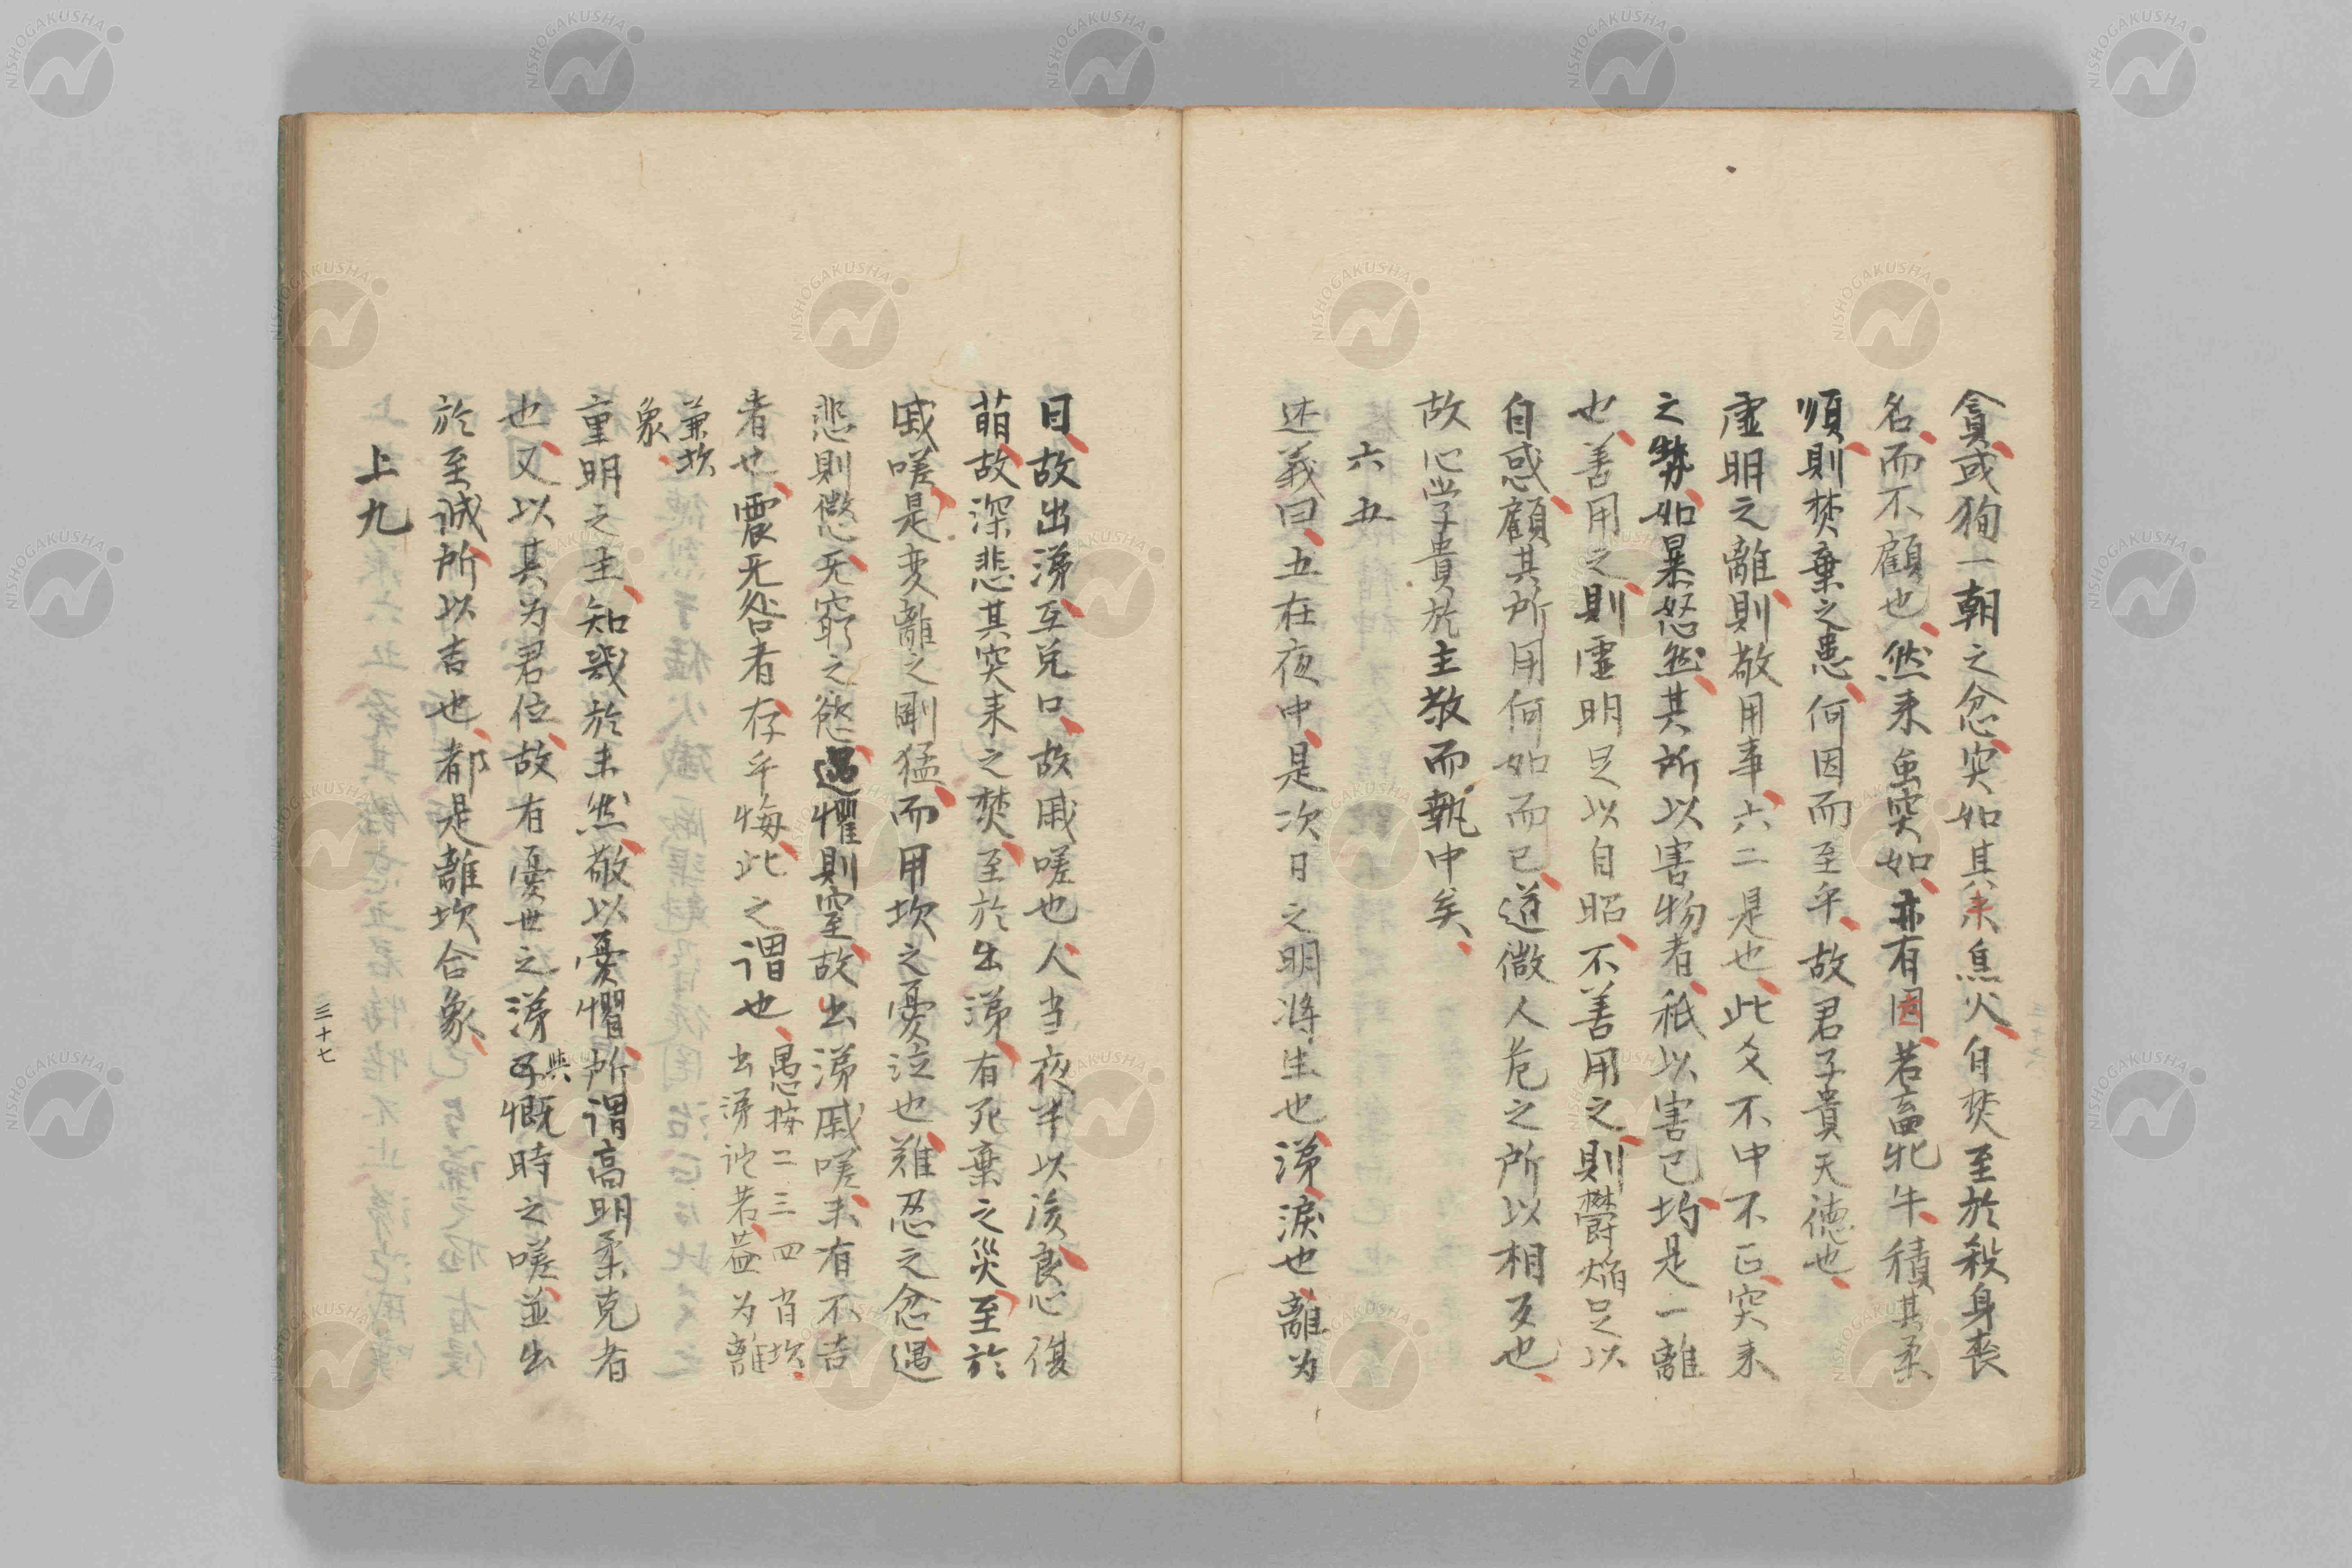 貪或狥一朝之忿突如其来焦火自焚至於殺身喪
名而不顧也然来虽突如亦有因若畜牝牛積其柔
順則焚棄之患何因而至乎故君子貴天徳也
虚明之離則敬用事六二是也此爻不中不正突来
之勢如暴怒然其所以害物者秖以害己均是一離
也善用之則虚明足以自昭不善用之則欝焔足以
自惑顧其所用何如而已道微人危之所以相反也
故心学貴於主敬而執中矣
六五
述義曰五在夜中是次日之明将生也涕淚也離为
日故出涕互兌口故戚嗟也人当夜半以後良心復
萌故深悲其突来之焚至於出涕有死棄之災至於
戚嗟是変離之剛猛而用坎之憂泣也難忍之忿遇
悲則懲无窮之慾遇懼則窒故出涕戚嗟未有不吉
者也震无咎者存乎悔此之謂也愚按二三四肖坎
出涕沱若葢为離
兼坎
象
重明之主知幾於未然敬以憂懼所謂高明柔克者
也又以其为君位故有憂世之涕與慨時之嗟並出
於至誠所以吉也都是離坎合象
上九
三十七
NISHOGAKUSHA